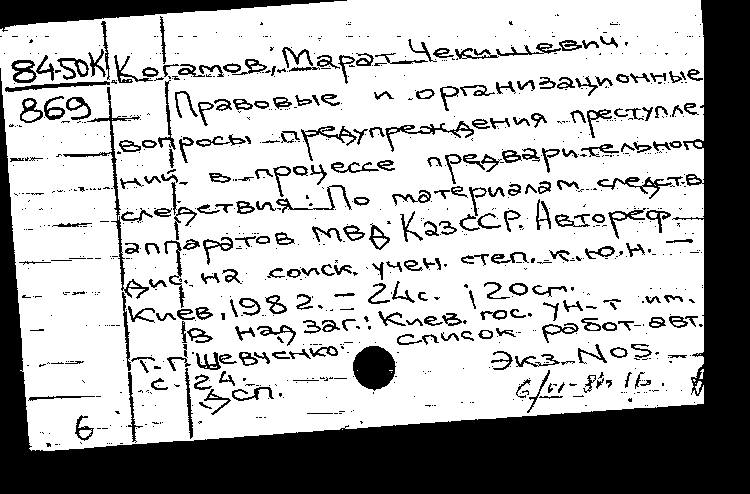 84-50К Когамов, Марат Чекишевич.
869 Правовые и организационные
вопросы предупреждения преступле-
ний в процессе предварительного
следствия: По материалам следств.
аппаратов МВД КазССР. Автореф.
дис. на соиск. учен. степ. к.ю.н. —
Киев, 1982. – 24с. ; 20см.
В надзаг.: Киев. гос. ун-т им.
Т. Г. Шевченко. Список работ авт.
с. 24. Экз. № 05.
ДСП.
6